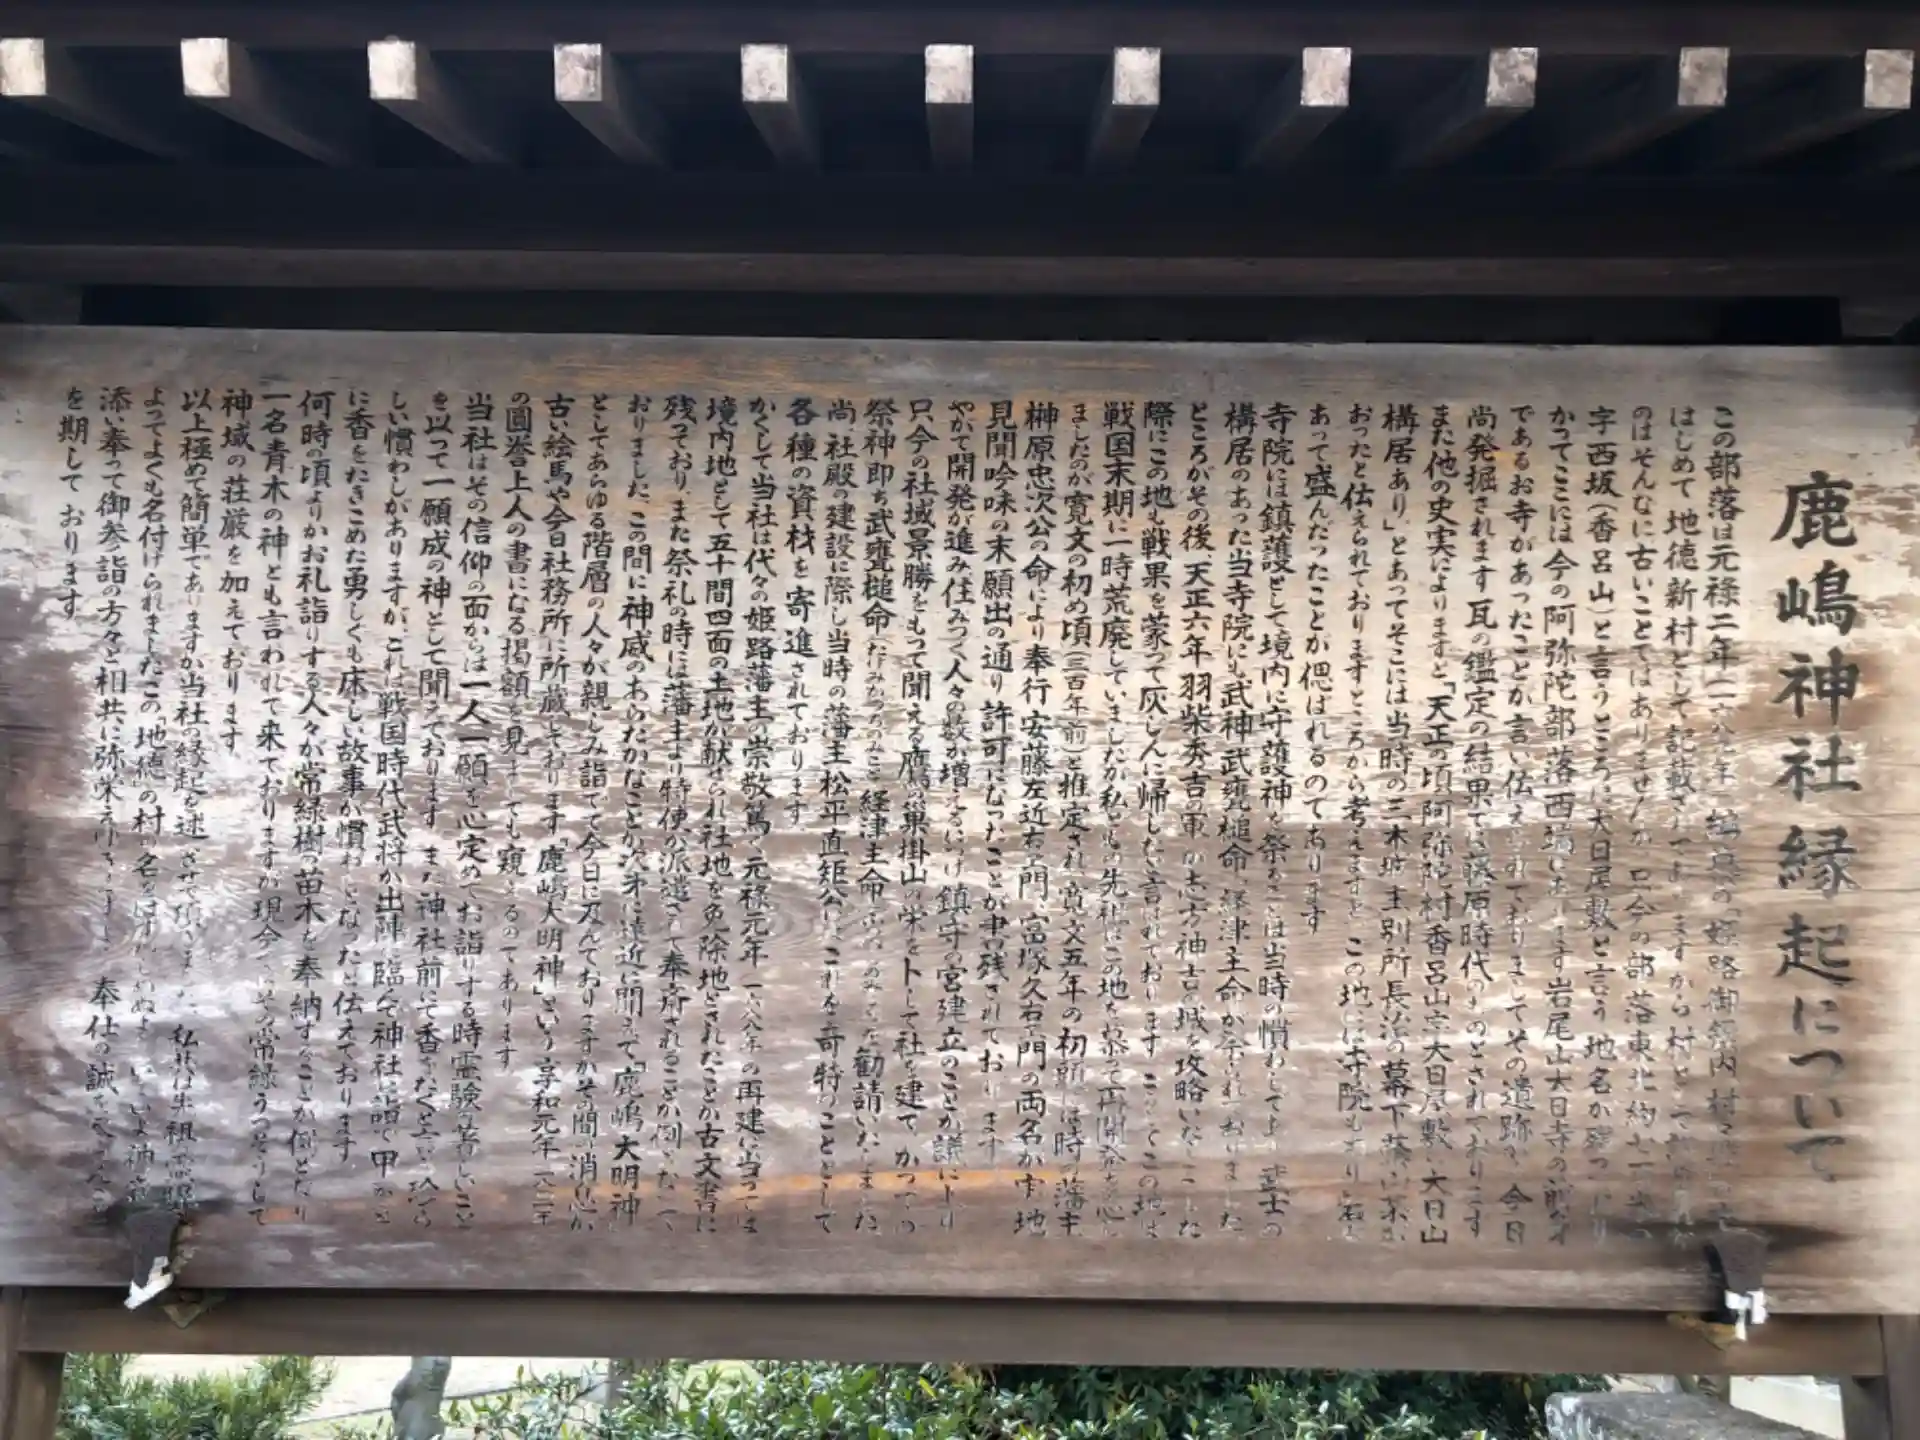 鹿嶋神社縁起について
この部落は元禄二年
はじめて地徳新村として記載され ますから村として
のはそんなに古いことではありませんが 只今の部落東北約
字西坂(香呂山)と言うところに大日屋敷と言う地名が残っており
かつてここには今の阿弥陀部落西端にあります岩尾山大日寺の前身
であるお寺があったことが言い伝えられておりましてその遺跡から今日
尚発掘されます瓦の鑑定の結果では藤原時代のものとされております
また他の史実によりますと「天正の頃阿弥陀村香呂山字大日屋敷に大日山
構居あり」とあってそこには当時の三木城主別所長治の幕下
おったと伝えられておりますところから考えますと この地には寺院もあり
あって盛んだったことが偲ばれるのであります
寺院には鎮護として境内に守護神を祭ることは当時の慣わしで 武士の
構居のあった当寺院にも武神武甕槌命、経津主命が祭られておりました
ところがその後、天正六年羽柴秀吉の軍が志方神吉の城を攻略いたしました
際にこの地も戦果を蒙って灰じんに帰したと言はれております この地は
戦国末期に一時荒廃していましたが私共の先祖がこの地を 再開発
ましたのが寛文の初め頃(三百年前)と推定され、寛文五年の初願には時の藩主
榊原忠次公の命により奉行安藤左近右エ門、富塚久右エ門の両名が実地
見聞吟味の末願出の通り許可になったことが書き残されております
やがて開発が進み住みつく人々の数が増えるにつけ鎮守の宮建立のことが議に上り
只今の社域景勝をもって聞える鷹の巣掛山の栄をトして社を建て、かつての
祭神即ち武甕槌命(たけみかづちのみこと)経津主命 勧請いたしました
尚社殿の建設に際し当時の藩主松平直矩公には これを奇特のこととして
各種の資材を寄進されております
かくして当社は代々の姫路藩主の崇敬篤く元禄元年 の再建に当っては
境内地として五十間四面の土地が献ぜられ社地を免除地とされたことが古文書に
残っており、また祭礼の時には藩主より特使が派遣されて奉斎されることが例となって
おりました、この間に神威のあらたかなことが次第に遠近に聞えて「鹿嶋大明神」
としてあらゆる階層の人々が親しみ詣でて今日に及んでおりますがその間の消息が
古い絵馬や今日社務所に所蔵しております「鹿嶋大明神」という享和元年
の圓誉上人の書になる掲額を見ましても窺えるのであります
当社はその信仰の面からは一人一願を心定めてお詣りする時霊験の著しいこと
を以って一願成の神として聞えております また神社前にて香をたくと言う珍ら
しい慣わしがありますが、これは戦国時代武将が出陣に臨んで神社に詣で甲かぶと
に香をたきこめた勇しくも床しい故事が慣わしとなったと伝えております
何時の頃よりかお礼詣りする人々が常緑樹の苗木を奉納することが例となり
一名青木の神とも言われて来ておりますが現今ではその常緑うっそうとして
神域の荘厳を加えております
以上極めて簡単でありますが当社の縁起を述べさせて頂きました 私共は先祖
よってよくも名付けられましたこの「地徳」の村の名を
添い奉って御参詣の方々と相共に弥栄 奉仕の誠を
を期しております